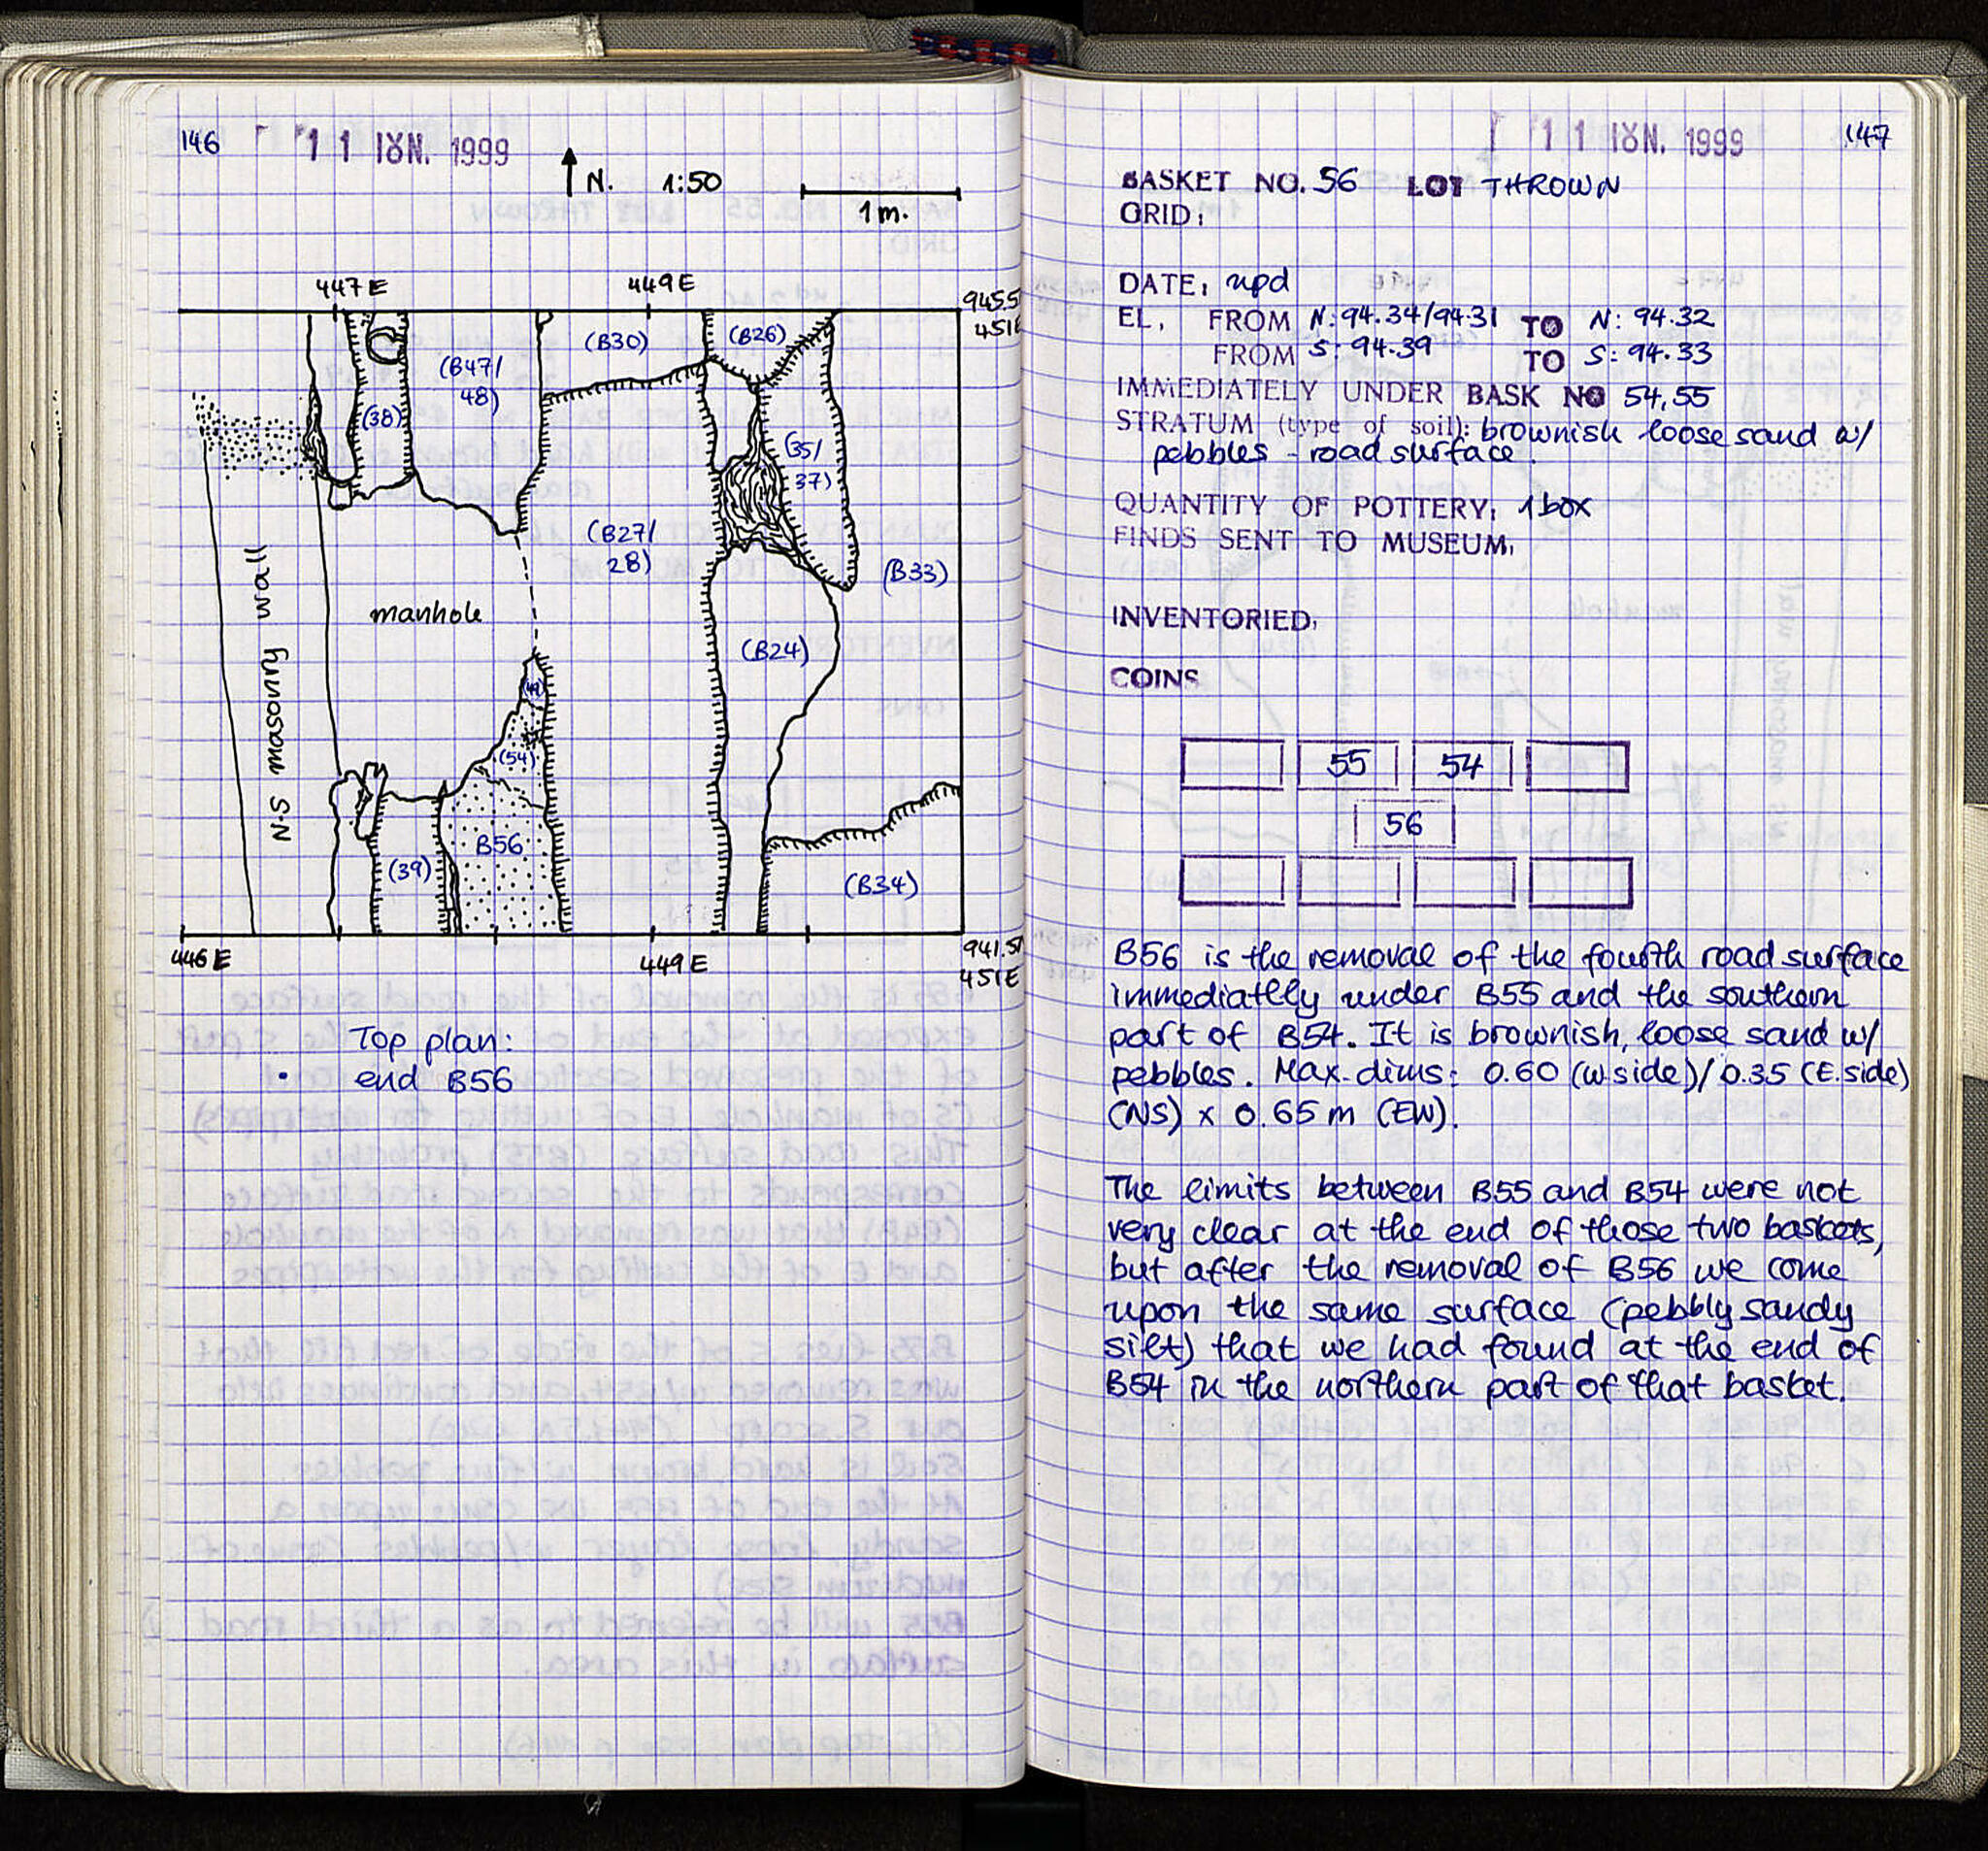 146
11 ΙȣΝ. 1999
N. 1:50
1m.
447 E
449 E
945.5
451E
(B30)
(B26)
(B47/
48)
(38)
(35/
37)
(B27/
28)
(B33)
N-S masonry wall
manhole
(B24)
(54)
B56
(39)
(B34)
446 E
449 E
941.5
451E
Top plan:
end B56
11 ΙȣΝ. 1999
147
BASKET NO. 56 LOT THROWN
GRID:
DATE: upd
EL. FROM N: 94.34/94.31 TO N: 94.32
FROM S: 94.39 TO S: 94.33
IMMEDIATELY UNDER BASK NO 54,55
STRATUM (type of soil): brownish loose sand w/
pebbles - road surface.
QUANTITY OF POTTERY: 1 box
FINDS SENT TO MUSEUM:
INVENTORIED:
COINS
55 54
56
B56 is the removal of the fourth road surface
immediatlly under B55 and the southern
part of B54. It is brownish, loose sand w/
pebbles. Max. dims: 0.60 (W side)/0.35 (E. side)
(NS) x 0.65 m (EW).
The limits between B55 and B54 were not
very clear at the end of those two baskets,
but after the removal of B56 we come
upon the same surface (pebbly sandy
silt) that we had found at the end of
B54 in the northern part of that basket.